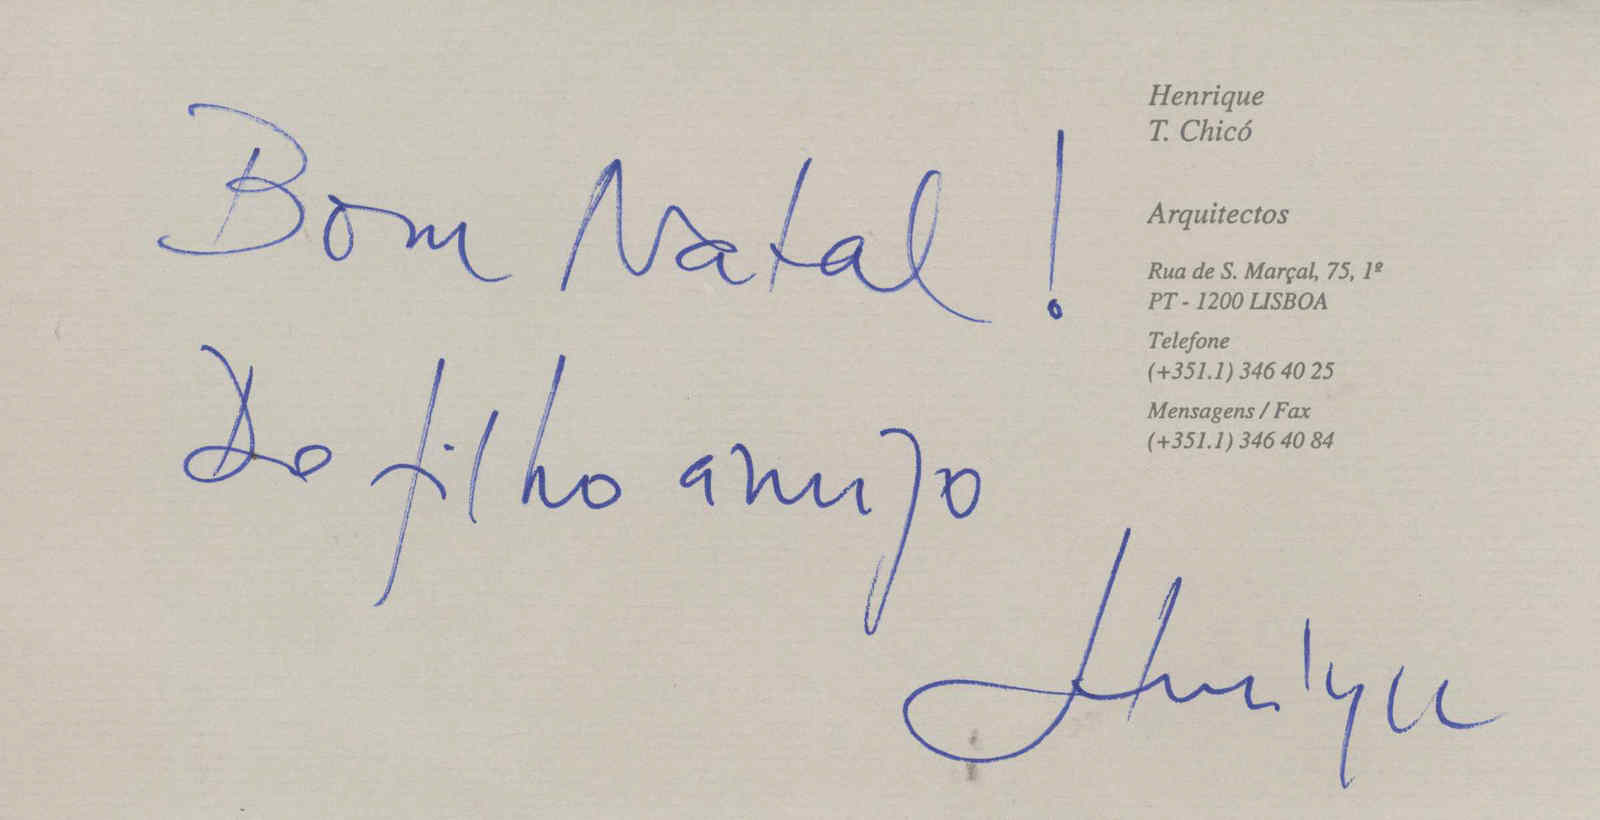 Bom Natal!
Do filho amigo
Henrique
Henrique
T. Chicó
Arquitectos
Rua de S. Marçal, 75, 1º
PT - 1200 LISBOA
Telefone
(+351.1) 346 40 25
Mensagens / Fax
(+351.1) 346 40 84